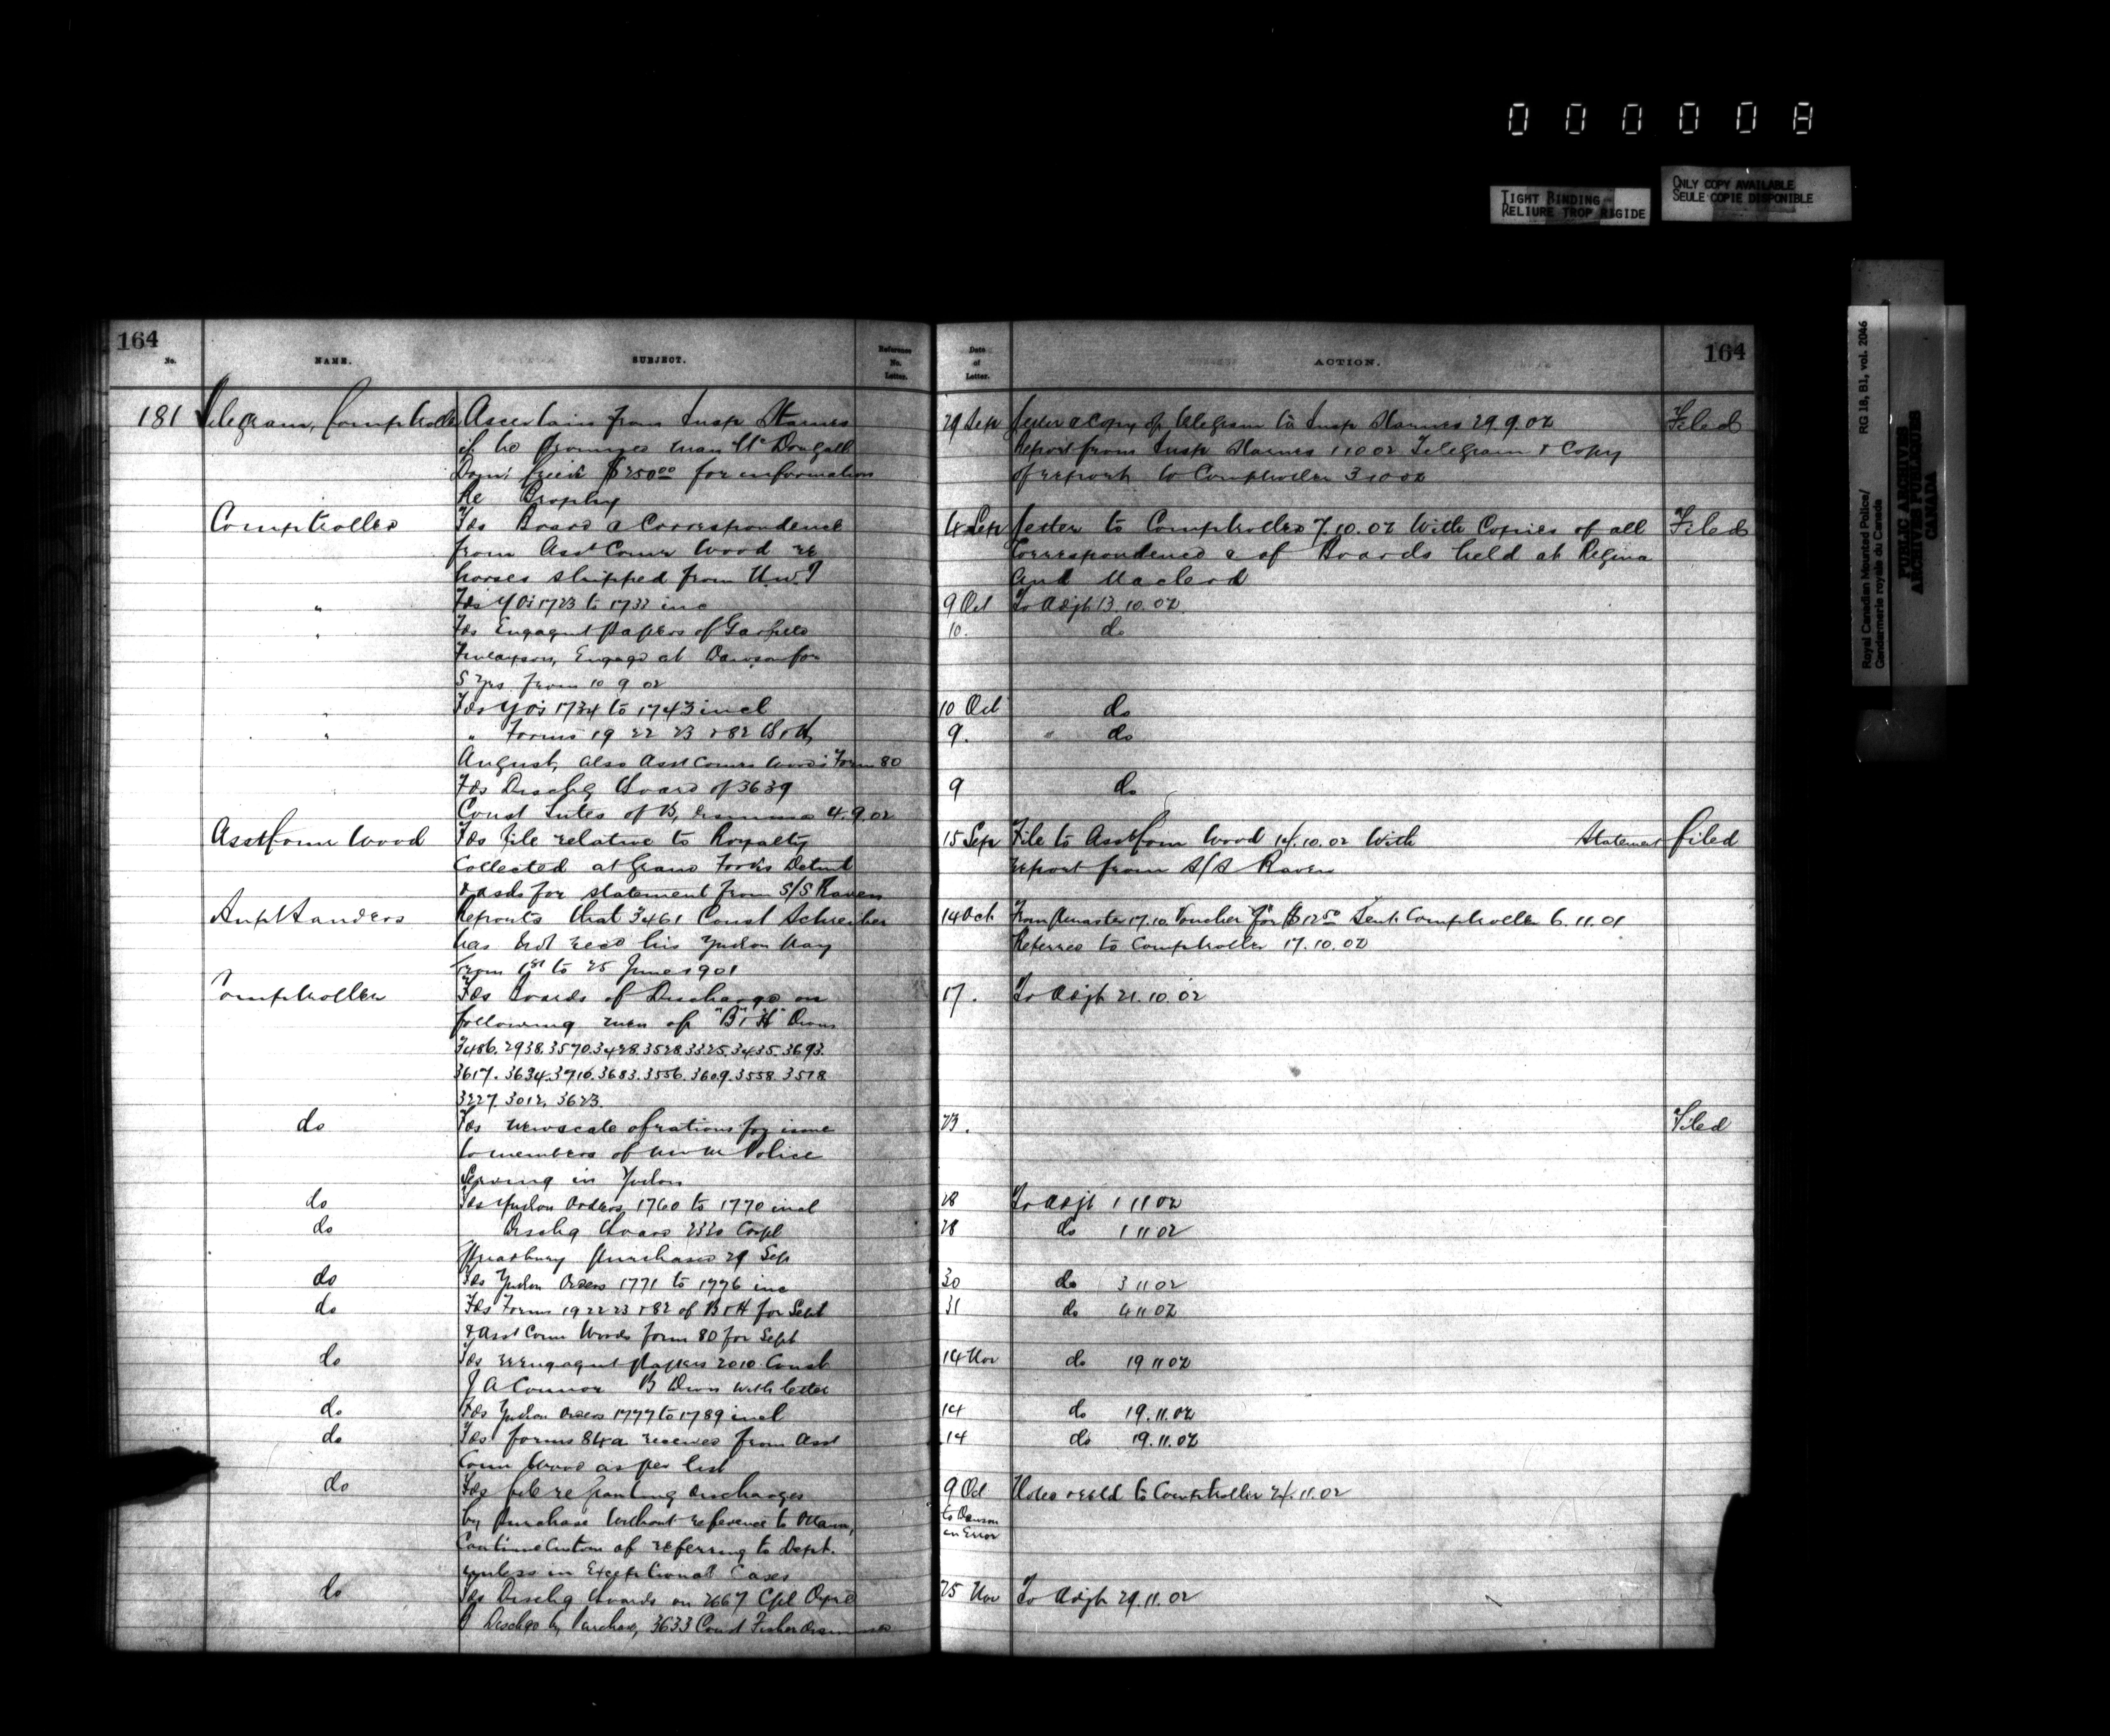 000008
TIGHT BINDING
RELIURE TROP RIGIDE
ONLY COPY AVAILABLE
SEULE COPIE DISPONIBLE
Royal Canadian Mounted Police/
Gendarmerie royale du Canada
RG 18, B1, vol. 2046
PUBLIC ARCHIVES
ARCHIVES PUBLIQUES
CANADA
164
No.
NAME.
SUBJECT.
Reference
No.
Letter.
Date
of
Letter.
ACTION.
164
181 Telegram, Comptroller Ascertain from Insp Starnes 29 Sep Letter & Copy of telegram to Insp Starnes 29.9.02 Filed
if he promised man McDougall Report from Insp Starnes 1 10 02 Telegram & Copy
$250.00 for information of report to Comptroller 3 10 02
Re Brophy
Comptroller Fds Board & Correspondence 4 Sep Letter to Comptroller 7.10.02 With Copies of all Filed
from Asst Comr Wood re Correspondence & of Boards held at Regina
horses shipped from N.W.T and Macleod
" Fds YOs 1723 to 1733 inc 9 Oct To Adjt 13.10.02
" Fds Engagmt papers of Garfield 10. do
Finlayson, Engaged at Dawson for
5 Yrs from 10 9 02
" Fds YOs 1734 to 1743 incl 10 Oct do
" " Forms 19 22 23 & 82 B & H, 9. " do
August, also Asst Comrs Woods Form 80
Fds Dischg Board of 3639 9 do
Const of B, 4.9.02
Asst Comr Wood Fds file relative to Royalty 15 Sep File to Asst Com Wood 14.10.02 With Statement filed
Collected at Grand Forks Detmt report from S/S Raven
& asks for statement from S/S Raven
Supt Sanders Reports that 3461 Const Schreiber 14 Oct From Qmaster 17.10 Voucher for $12.50 Sent Comptroller 6.11.01
has not recd his Yukon Pay Referred to Comptroller 17.10.02
from 1st to 25 June 1901
Comptroller Fds Boards of Discharge on 17. To Adjt 21.10.02
following men of "B" & "H" Divns
3486. 2938. 3570. 3428. 3528. 3325. 3435. 3693.
3617. 3634. 3710. 3683. 3556. 3609. 3558. 3518
3227. 3012. 3623.
do Fds new scale of rations for issue 23. Filed
to members of N W M Police
Serving in Yukon
do Fds Yukon Orders 1760 to 1770 incl 28 To Adjt 1 11 02
do Dischg Board 2320 Corpl 28 do 1 11 02
Spreadbury purchased 29 Sep
do Fds Yukon Orders 1771 to 1776 inc 30 do 3 11 02
do Fds Forms 19 22 23 & 82 of B & H for Sept 31 do 4 11 02
& Asst Comr Woods form 80 for Sept
do Fds reengagmt papers 2010 Const 14 Nov do 19 11 02
J A Connor B Divn with letter
do Fds Yukon Orders 1777 to 1789 incl 14 do 19.11.02
do Fds forms 84a received from Asst 14 do 19.11.02
Comr Wood as per list
do Fds file re granting discharges 9 Oct Noted & retd to Comptroller 24.11.02
by purchase without reference to Ottawa, to Dawson
Continue Custom of referring to Dept. in Error
unless in Exceptional Cases
do Fds Dischg Boards on 2667 Cpl 25 Nov To Adjt 29.11.02
Dischgd by Purchase, 3633 Const Fisher